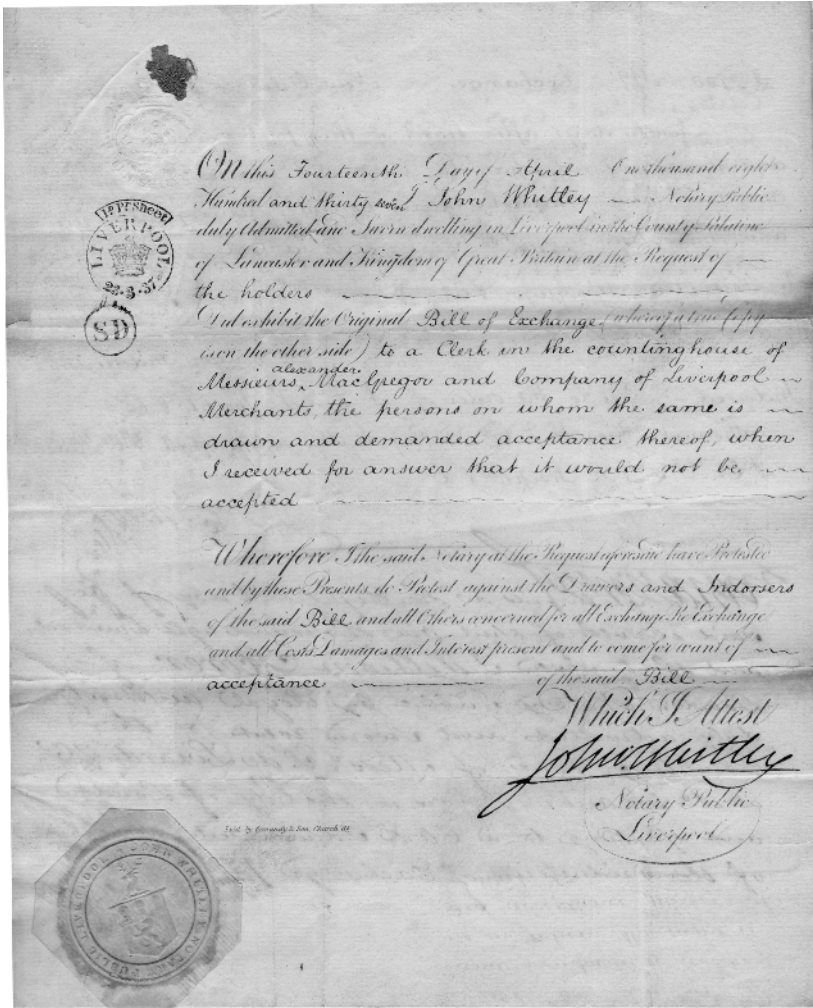 1s Pr Sheet
LIVERPOOL
22.3.37
SD
On this Fourteenth Day of April One thousand eight
Hundred and thirty seven I John Whitley Notary Public
duly Admitted and Sworn dwelling in Liverpool in the County Palatine
of Lancaster and Kingdom of Great Britain at the Request of
the holders
Did exhibit the Original Bill of Exchange (whereof a true Copy
is on the other side) to a Clerk in the countinghouse of
alexander
Messieurs, MacGregor and Company of Liverpool
Merchants, the persons on whom the same is
drawn and demanded acceptance thereof, when
I received for answer that it would not be
accepted
Wherefore I the said Notary at the Request aforesaid have Protested
and by these Presents do Protest against the Drawers and Indorsers
of the said Bill and all Others concerned for all Exchange Re-Exchange
and all Costs Damages and Interest present and to come for want of
acceptance of the said Bill
Which I Attest
John Whitley
Notary Public
Liverpool
& Son, Church St
JOHN WHITLEY NOTARY PUBLIC LIVERPOOL